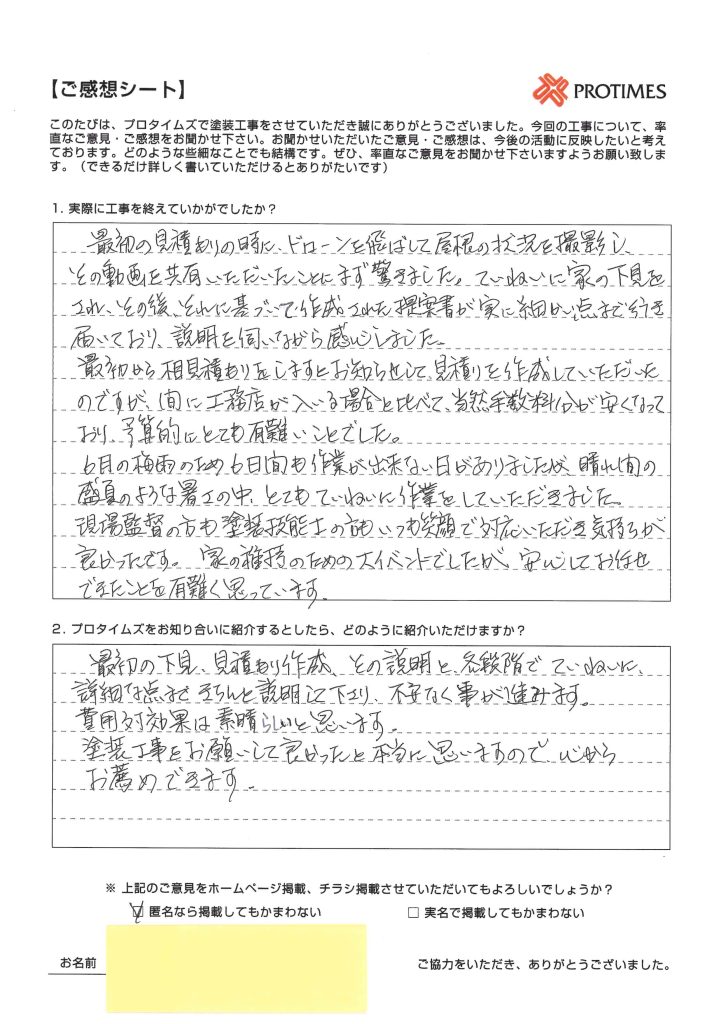 【ご感想シート】
PROTIMES
このたびは、プロタイムズで塗装工事をさせていただき誠にありがとうございました。今回の工事について、率
直なご意見・ご感想をお聞かせ下さい。お聞かせいただいたご意見・ご感想は、今後の活動に反映したいと考え
ております。どのような些細なことでも結構です。ぜひ、率直なご意見をお聞かせ下さいますようお願い致しま
す。（できるだけ詳しく書いていただけるとありがたいです）
1. 実際に工事を終えていかがでしたか？
最初の見積もりの時に、ドローンを飛ばして屋根の状況を撮影し、
その動画を共有いただいたことにまず驚きました。ていねいに家の下見を
され、その後、それに基づいて作成された提案書が実に細かい点まで行き
届いており、説明を伺いながら感心しました。
最初から相見積もりをしますとお知らせして、見積りを作成していただいた
のですが、間に工務店が入いる場合と比べて、当然手数料分が安くなって
おり、予算的にとても有難いことでした。
6月の梅雨のため6日間も作業が出来ない日がありましたが、晴れ間の
盛夏のような暑さの中、とてもていねいに作業をしていただきました。
現場監督の方も塗装技能士の方もいつも笑顔で対応いただき気持ちが
良かったです。 家の維持のための大イベントでしたが、安心してお任せ
できたことを有難く思っています。
2. プロタイムズをお知り合いに紹介するとしたら、どのように紹介いただけますか？
最初の下見、見積もり作成、その説明と、各段階でていねいに、
詳細な点まできちんと説明して下さり、不安なく事が進みます。
費用対効果は素晴らしいと思います。
塗装工事をお願いして良かったと本当に思いますので心から
お薦めできます。
※ 上記のご意見をホームページ掲載、チラシ掲載させていただいてもよろしいでしょうか？
☑ 匿名なら掲載してもかまわない □ 実名で掲載してもかまわない
お名前 ご協力をいただき、ありがとうございました。